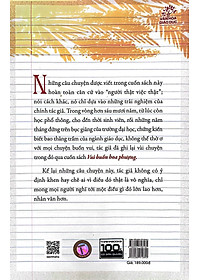 Những câu chuyện được viết trong cuốn sách này
hoàn toàn căn cứ vào "người thật việc thật";
nói cách khác, nó chỉ dựa vào những trải nghiệm của
chính tác giả. Trong vòng hơn sáu mươi năm, từ lúc còn
học phổ thông, cho đến thời sinh viên, rồi những năm
tháng đứng trên bục giảng của trường đại học, chứng kiến
biết bao thăng trầm của ngành giáo dục, không thể thờ ơ
với mọi chuyện buồn vui, tác giả đã ghi lại vài chuyện
trong đó qua cuốn sách Vui buồn hoa phượng.
Kể lại những câu chuyện này, tác giả không có ý
định khen hay chê ai vì điều đó thật là vô nghĩa, chỉ
mong mọi người nghĩ tới một điều gì đó lớn lao hơn,
nhân văn hơn.
100%
Giá: 149.000đ